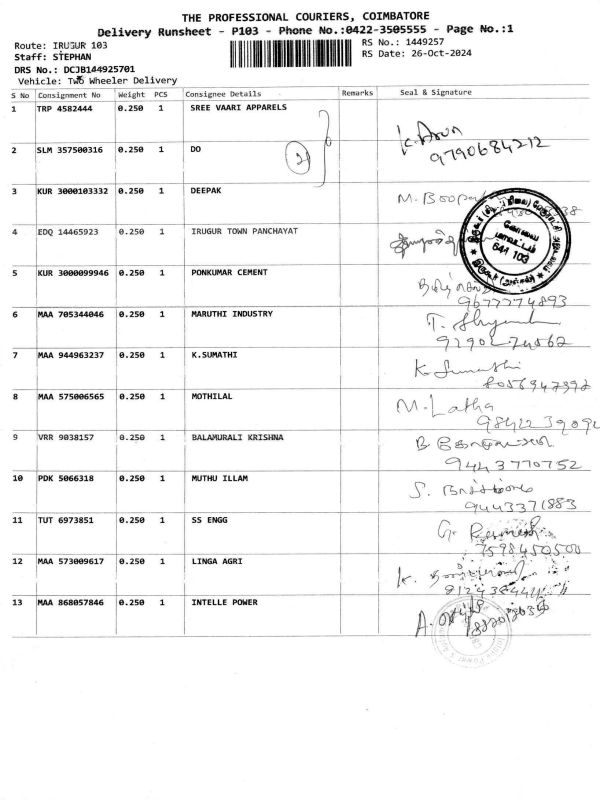 THE PROFESSIONAL COURIERS, COIMBATORE
Delivery Runsheet - P103 - Phone No.:0422-3505555 - Page No.:1
Route: IRUGUR 103
RS No.: 1449257
Staff: STEPHAN
RS Date: 26-Oct-2024
DRS No.: DCJB144925701
Vehicle: Two Wheeler Delivery
S No Consignment No Weight PCS Consignee Details Remarks Seal & Signature
1 TRP 4582444 0.250 1 SREE VAARI APPARELS
K. Arun
9790684212
2 SLM 357500316 0.250 1 DO
2
3 KUR 3000103332 0.250 1 DEEPAK
4 EDQ 14465923 0.250 1 IRUGUR TOWN PANCHAYAT
கோவை
மாவட்டம்
641 103
5 KUR 3000099946 0.250 1 PONKUMAR CEMENT
9677774893
6 MAA 705344046 0.250 1 MARUTHI INDUSTRY
7 MAA 944963237 0.250 1 K.SUMATHI
K Sumathi
8056947992
8 MAA 575006565 0.250 1 MOTHILAL
M. Latha
9842239092
9 VRR 9038157 0.250 1 BALAMURALI KRISHNA
9443770752
10 PDK 5066318 0.250 1 MUTHU ILLAM
9443371883
11 TUT 6973851 0.250 1 SS ENGG
G. Ramesh
7598450500
12 MAA 573009617 0.250 1 LINGA AGRI
13 MAA 868057846 0.250 1 INTELLE POWER